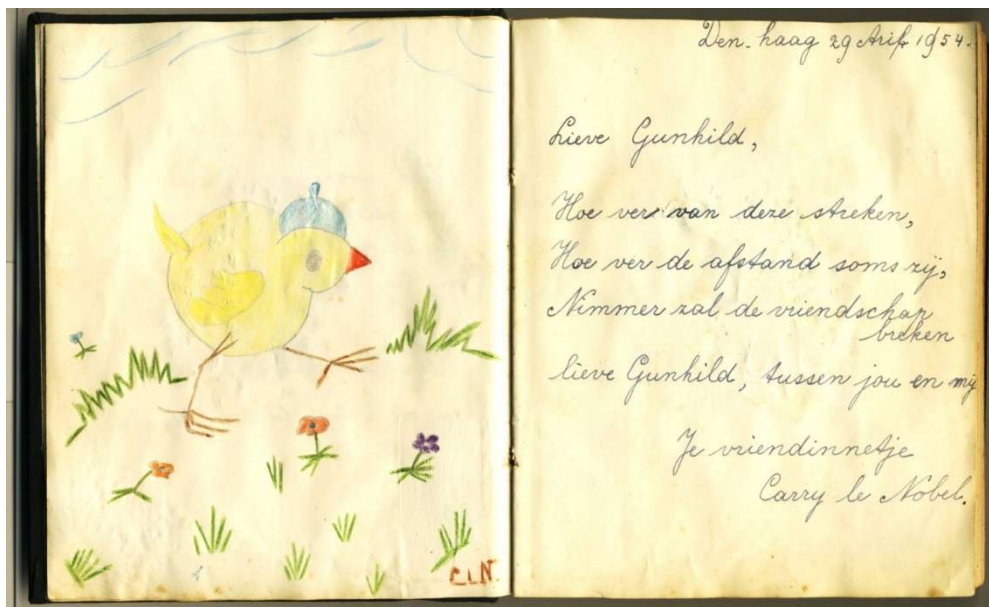 C.L.N.
Den. haag 29 April 1954.
Lieve Gunhild,
Hoe ver van deze streken,
Hoe ver de afstand soms zij,
Nimmer zal de vriendschap
breken
lieve Gunhild, tussen jou en mij
Je vriendinnetje
Carry le Nobel.